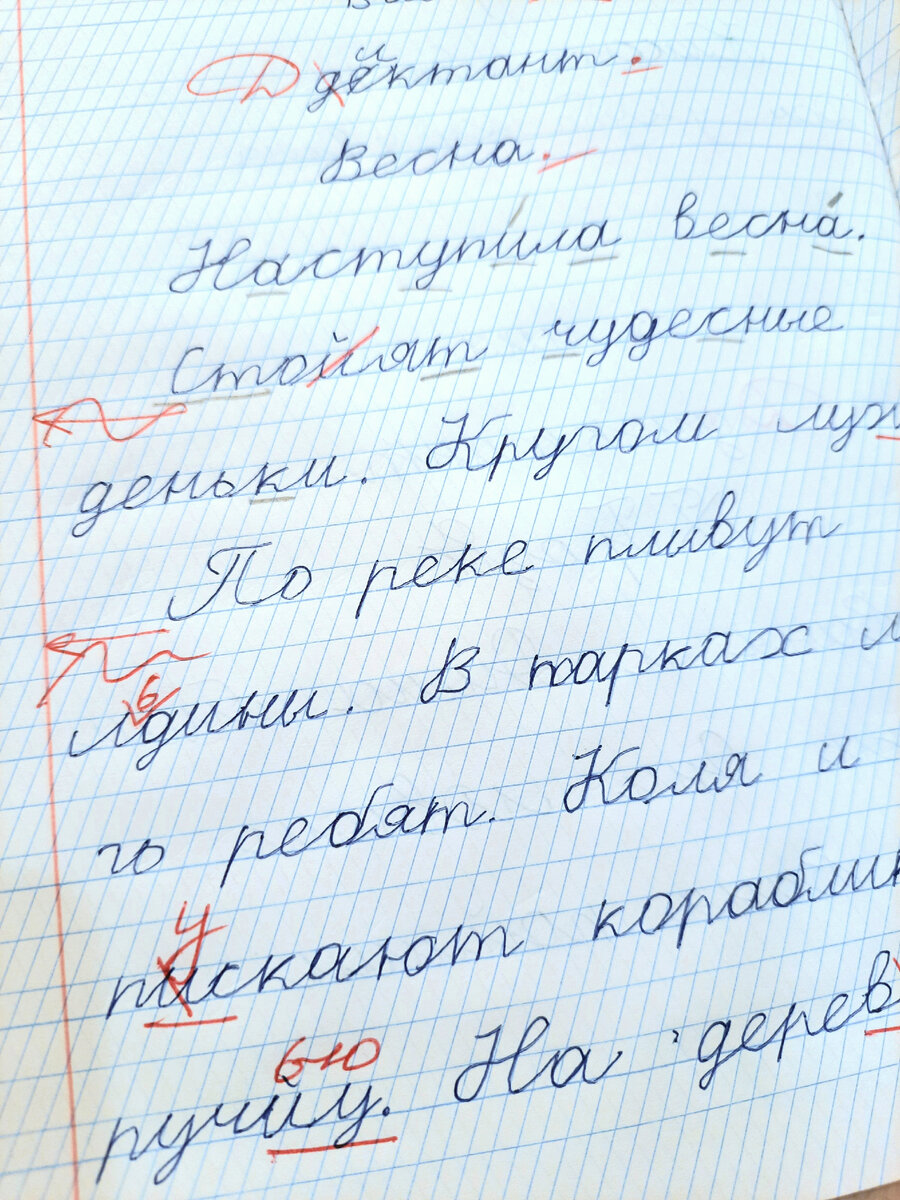 Диктант.
Весна.
Наступила весна.
Стойят чудесные
деньки. Кругом
По реке пливут
лдины. В парках
го ребят. Коля и
у
пискают кораблик
ью
ручйу. На дерев